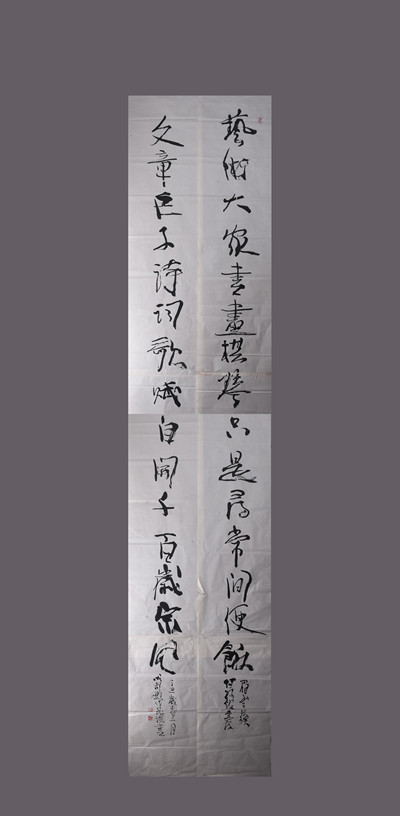 藝術大家書畫棋琴只是尋常間便飯
文章巨子詩詞歌賦自開千百歲宗風